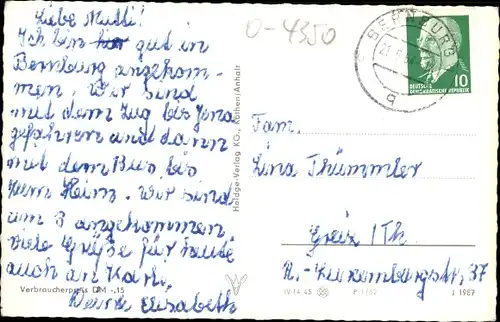 Liebe Mutti!
Ich bin gut in
Bernburg angekom-
men. Wir sind
mit dem Zug bis Jena
gefahren und dann
mit dem Bus bis
Heinz. Wir sind
um 3 angekommen
viele Grüße für heute
auch an Karl,
Deine Elisabeth
Verbraucherpreis DM -,15
Heldge-Verlag KG., Köthen/Anhalt
0-4350
BERNBURG
21.
64
q
10
DEUTSCHE
DEMOKRATISCHE REPUBLIK
Fam.
Lina Thümmler
Greiz / Th.
R.-Luxemburgstr. 37
IV-14-45
P 1/62
J 1987